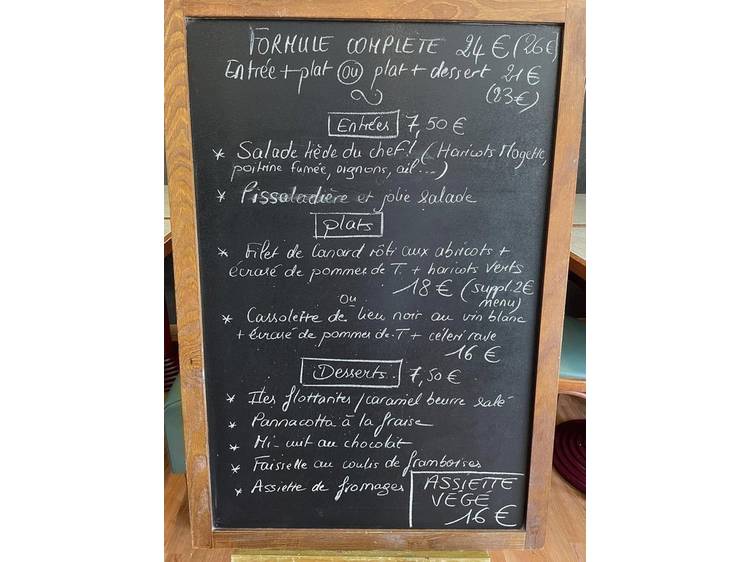 FORMULE COMPLETE 24 € (26 €)
Entrée + plat (ou) plat + dessert 21 €
(23€)
Entrées 7,50 €
* Salade tiède du chef! (Haricots Mogette,
poitrine fumée, oignons, ail...)
* Pissaladière et jolie salade
plats
* Filet de Canard rôti aux abricots +
écrasé de pommes de T. + haricots verts
18 € (suppl. 2€
menu)
ou
* Cassolette de lieu noir au vin blanc
+ écrasé de pommes de T + céleri rave
16 €
Desserts 7,50 €
* Iles flottantes / caramel beurre salé
* Pannacotta à la fraise
* Mi-cuit au chocolat
* Faisselle au coulis de framboises
* Assiette de fromages
ASSIETTE
VÉGÉ
16 €